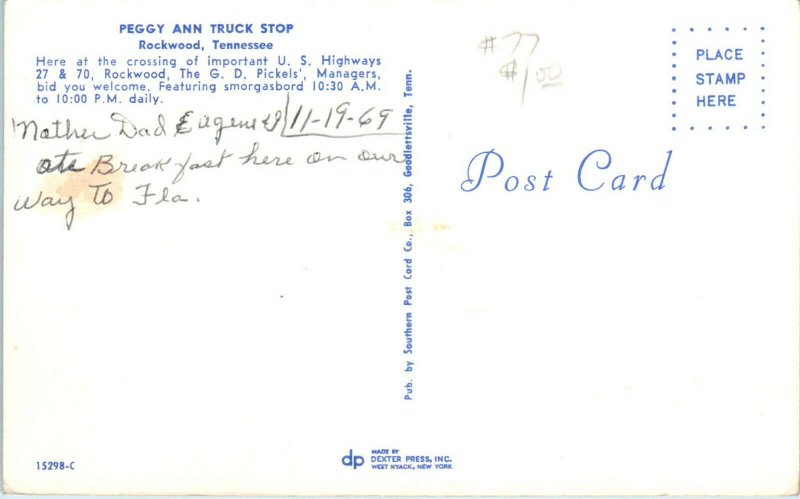 PEGGY ANN TRUCK STOP
Rockwood, Tennessee
Here at the crossing of important U. S. Highways
27 & 70, Rockwood, The G. D. Pickels', Managers,
bid you welcome. Featuring smorgasbord 10:30 A.M.
to 10:00 P.M. daily.
Mother Dad Eugene & I 11-19-69
ate Breakfast here on our
way To Fla.
15298-C
Pub. by Southern Post Card Co., Box 306, Goodlettsville, Tenn.
#77
$1.00
PLACE
STAMP
HERE
Post Card
dp
MADE BY
DEXTER PRESS, INC.
WEST NYACK, NEW YORK